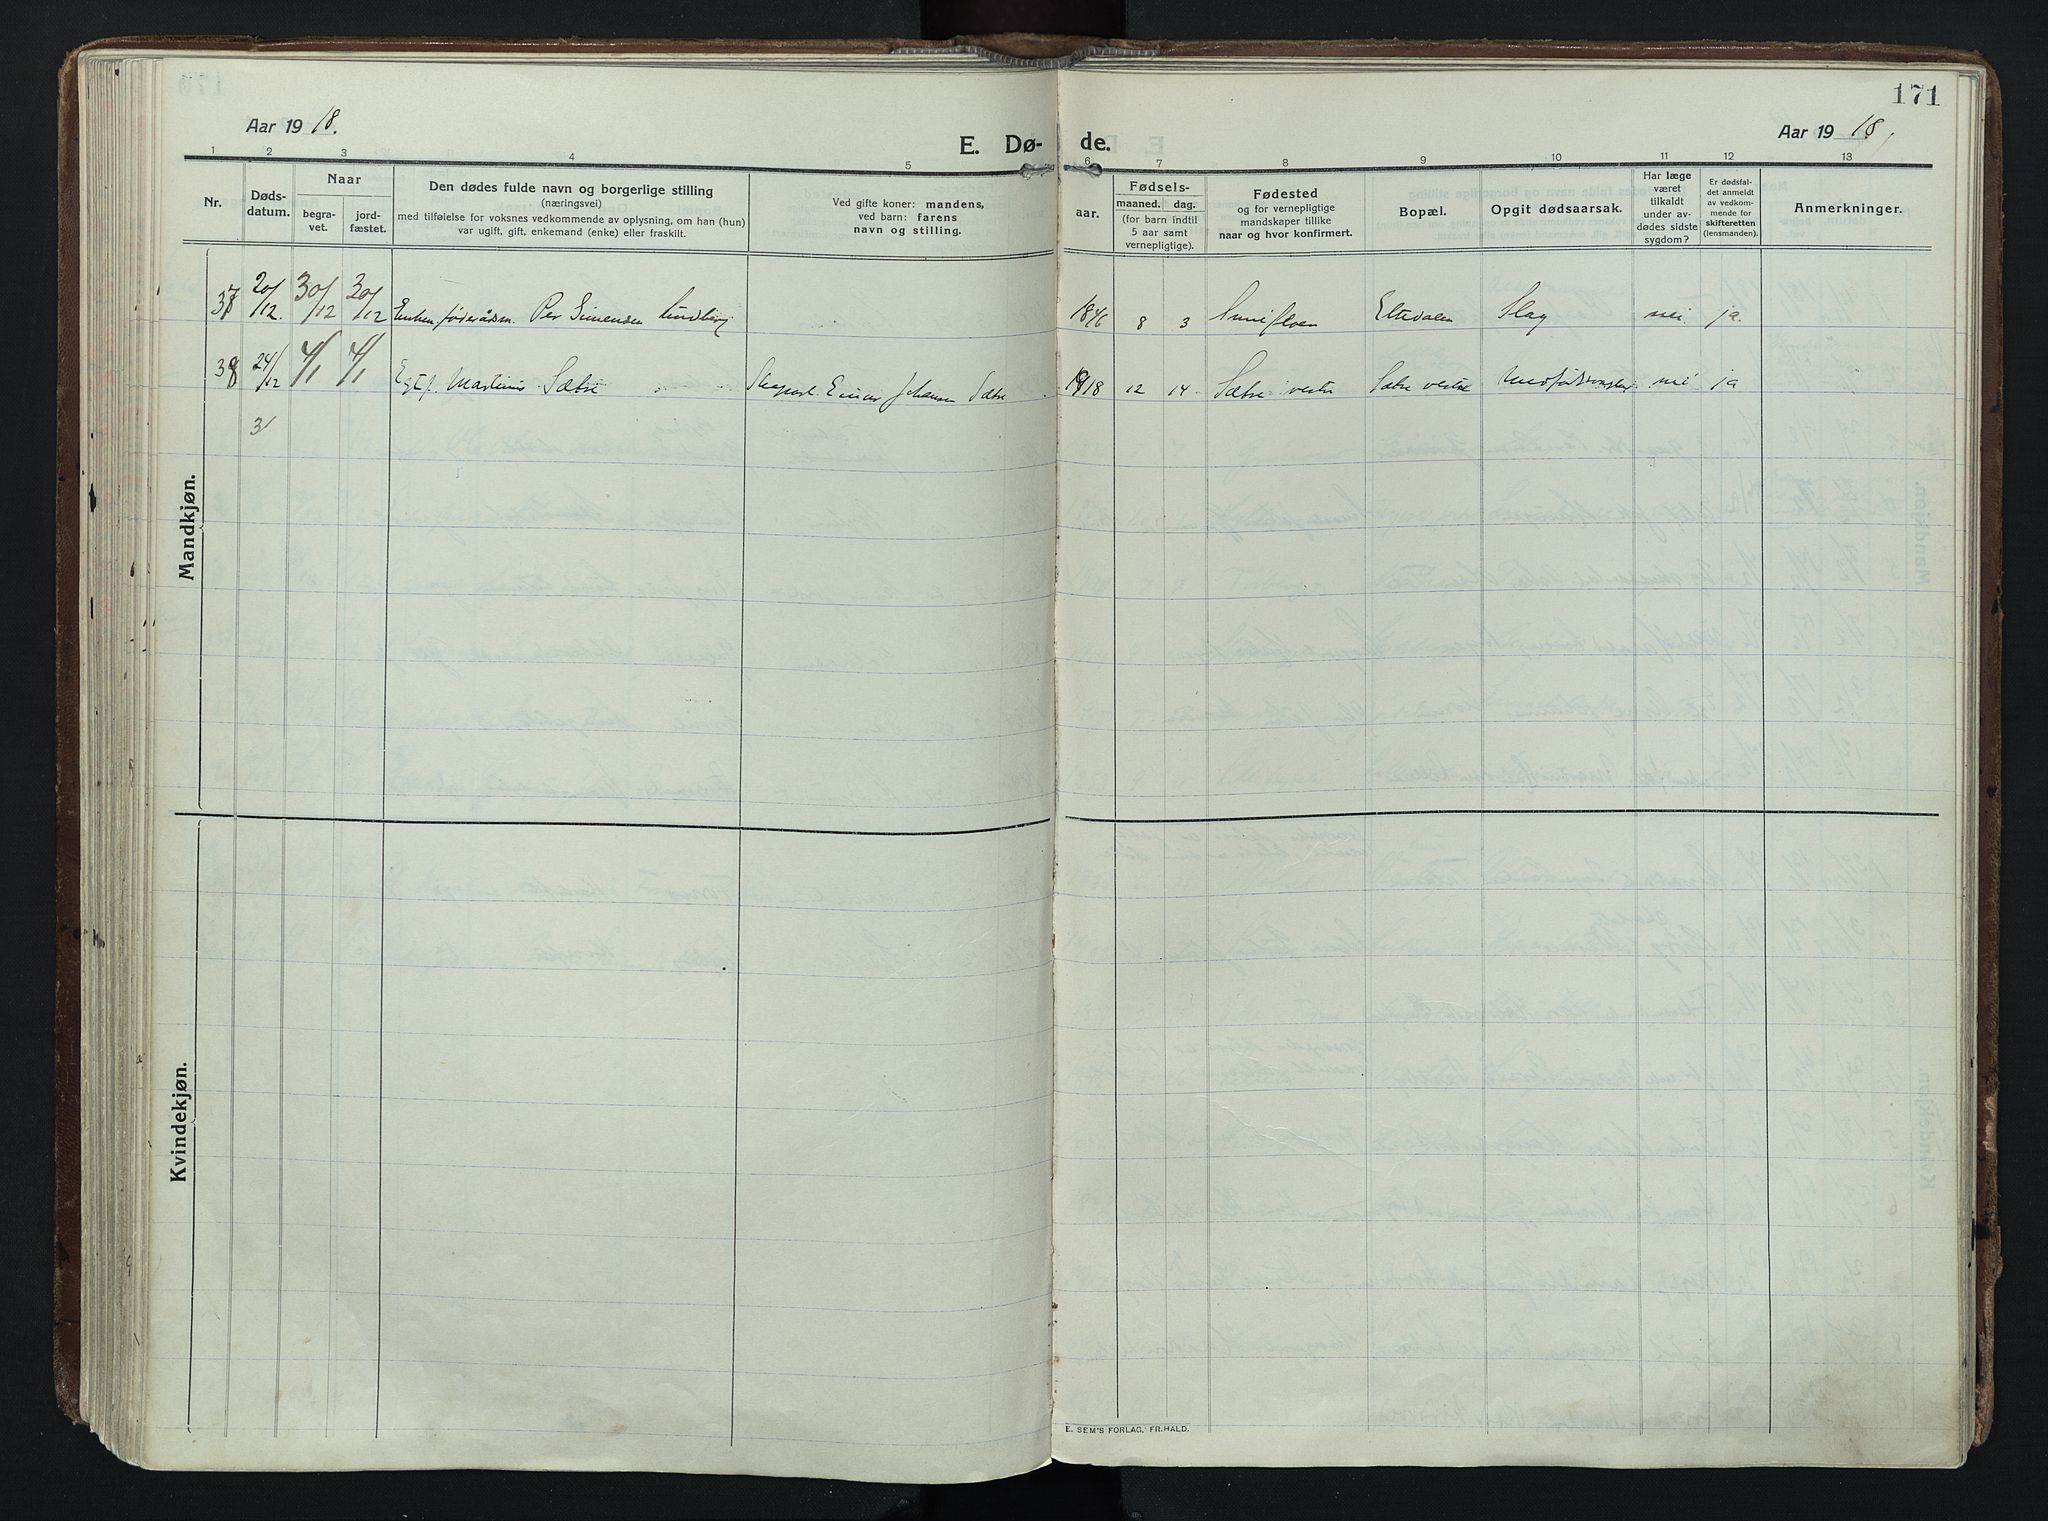 171
Aar 19 18.
Aar 19 18,
E. Dø- de.
1 2 3 4 5 6 7 8 9 10 11 12 13
Nr.
Døds-
datum.
Naar
begra-
vet.
jord-
fæstet.
Den dødes fulde navn og borgerlige stilling
(næringsvei)
med tilføielse for voksnes vedkommende av oplysning, om han (hun)
var ugift, gift, enkemand (enke) eller fraskilt.
Ved gifte koner: mandens,
ved barn: farens
navn og stilling.
aar.
Fødsels-
maaned. dag.
(for barn indtil
5 aar samt
vernepligtige).
Fødested
og for vernepligtige
mandskaper tillike
naar og hvor konfirmert.
Bopæl.
Opgit dødsaarsak.
Har læge
været
tilkaldt
under av-
dødes sidste
sygdom?
Er dødsfal-
det anmeldt
av vedkom-
mende for
skifteretten
(lensmanden).
Anmerkninger.
Mandkjøn.
37 20/12. 30/12 30/12 Enkem. føderådsm. Per Simensen Lundberg 1846 8 3 Elvedalen Slag nei ja.
38 24/12 4/1 4/1 Egtf. Martinus Sætre Einar Johansen Sætre 1918 12 14 Sætre vestre Sætre vestre nei ja
3
Kvindekjøn.
E. SEM'S FORLAG, FR.HALD.